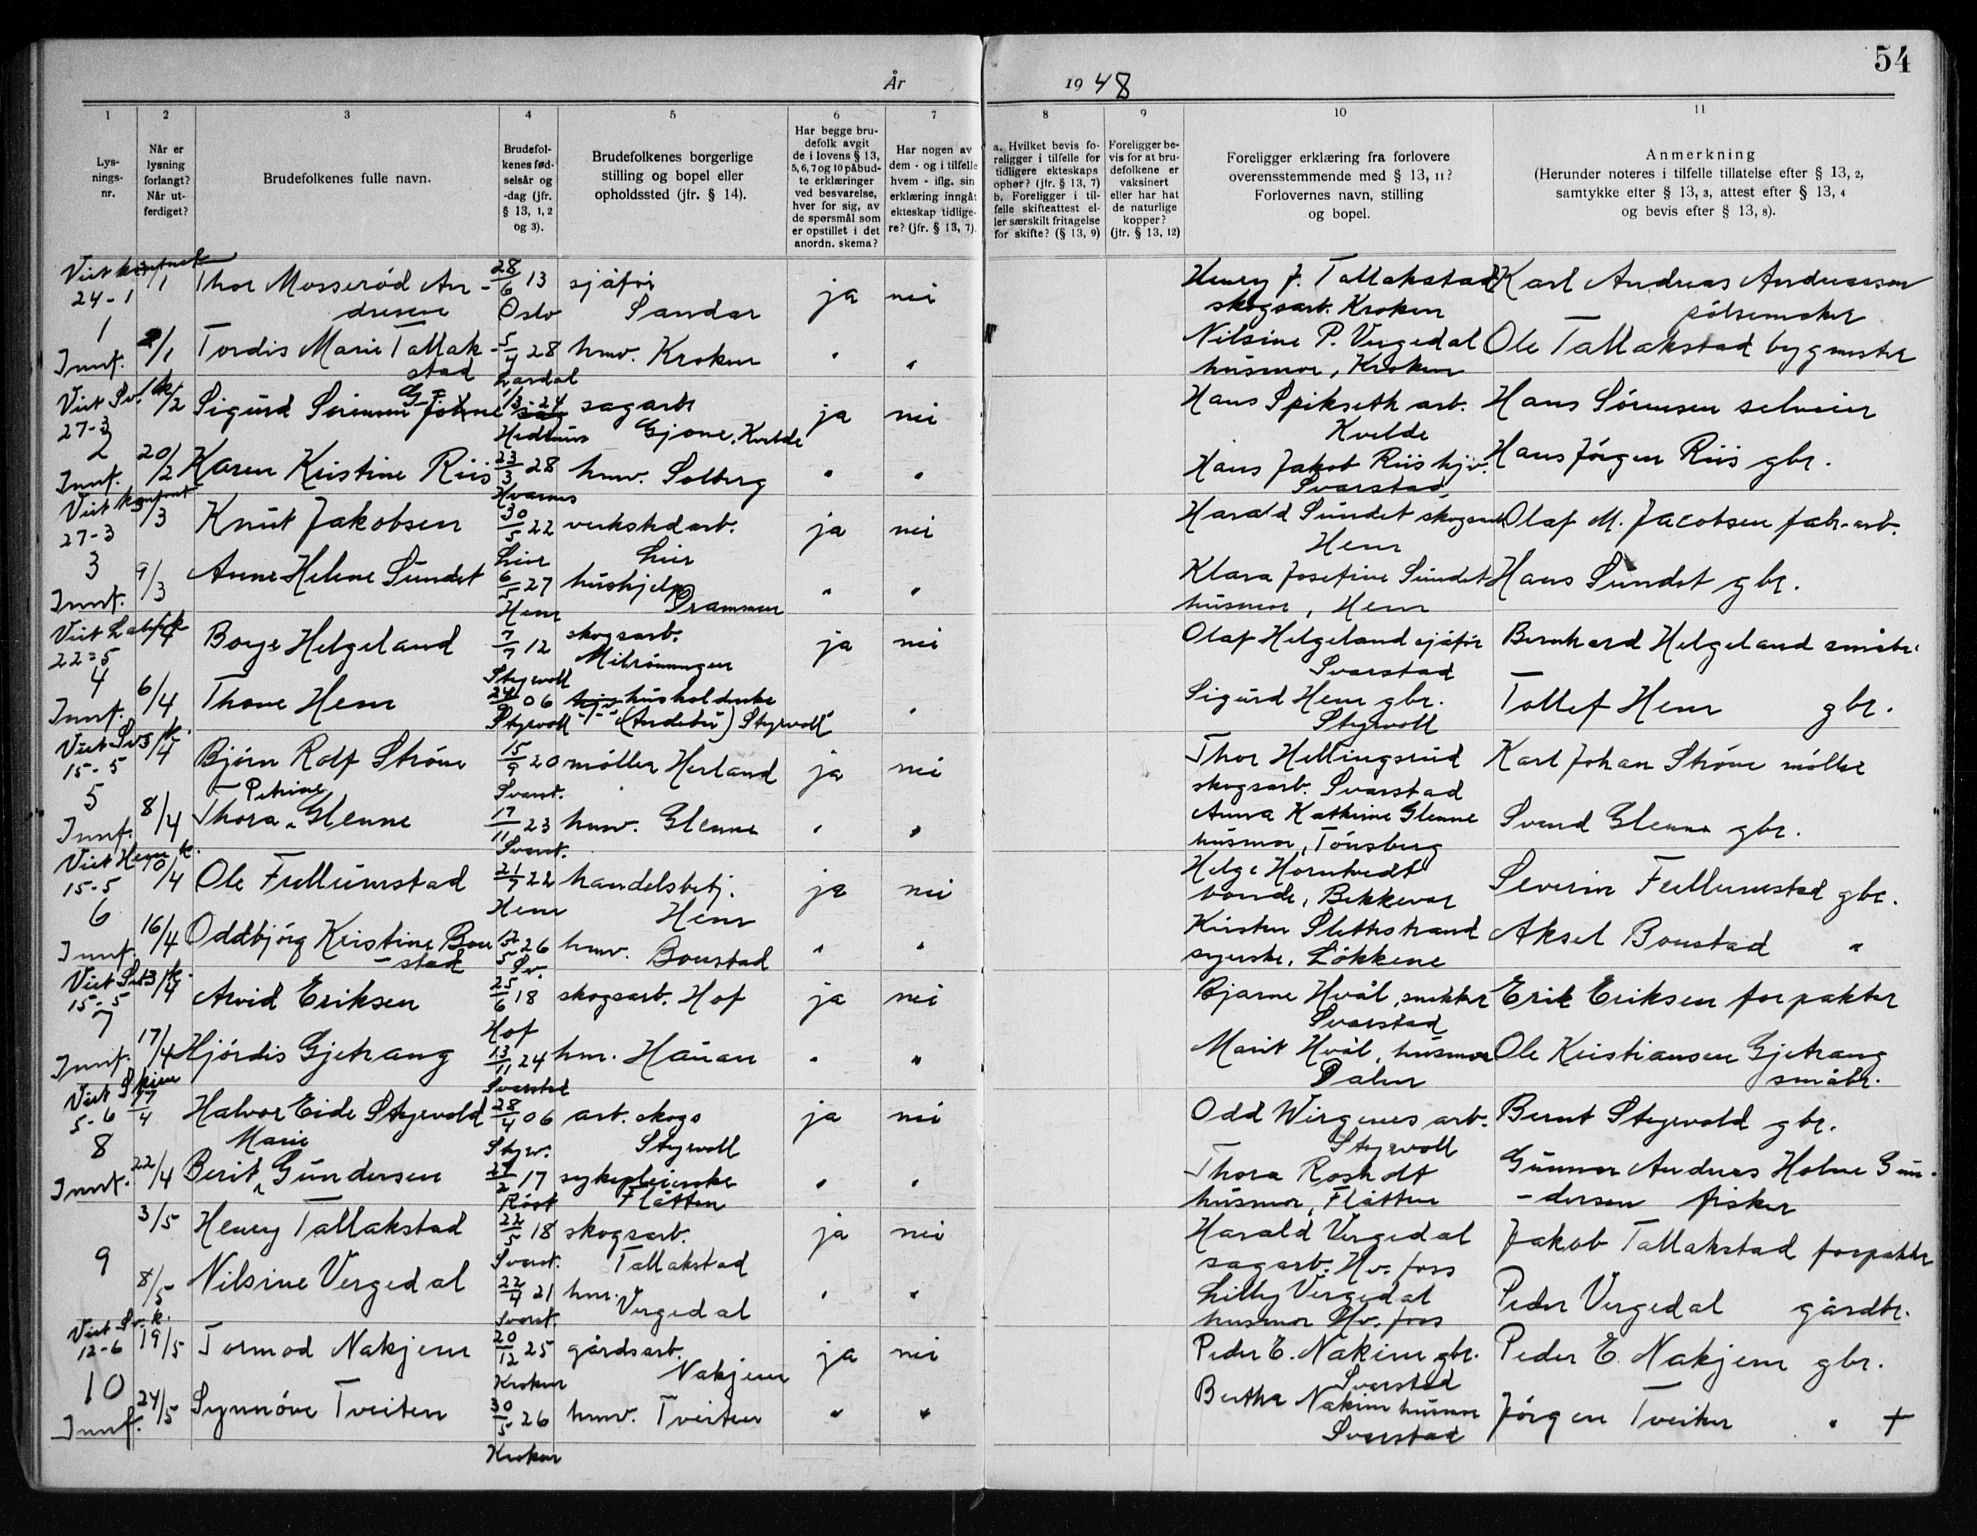 54
År 1948
1 2 3 4 5 6 7 8 9 10 11
Lys-
nings-
nr.
Når er
lysning
forlangt?
Når ut-
ferdiget?
Brudefolkenes fulle navn.
Brudefol-
kenes fød-
selsår og
-dag (jfr.
§ 13, 1, 2
og 3).
Brudefolkenes borgerlige
stilling og bopel eller
opholdssted (jfr. § 14).
Har begge bru-
defolk avgit
de i lovens § 13,
5, 6, 7 og 10 påbud-
te erklæringer
ved besvarelse,
hver for sig, av
de spørsmål som
er opstillet i det
anordn. skema?
Har nogen av
dem - og i tilfelle
hvem - iflg. sin
erklæring inngåt
ekteskap tidlige-
re? (jfr. § 13, 7).
a. Hvilket bevis fo-
religger i tilfelle for
tidligere ekteskaps
ophør? (jfr. § 13, 7)
b. Foreligger i til-
felle skifteattest el-
ler særskilt fritagelse
for skifte? (§ 13, 9)
Foreligger be-
vis for at bru-
defolkene er
vaksinert
eller har hat
de naturlige
kopper?
(jfr. § 13, 12)
Foreligger erklæring fra forlovere
overensstemmende med § 13, 11?
Forlovernes navn, stilling
og bopel.
Anmerkning
(Herunder noteres i tilfelle tillatelse efter § 13, 2,
samtykke efter § 13, 3, attest efter § 13, 4
og bevis efter § 13, 8).
24-1 Thor Mosserød An- 28/6 13 sjåfør ja nei Henry J. Tallakstad Karl Andreas Andreassen
dresen Oslo Sandar skogsarb. Kroken pølsemaker
1 Tordis Marie Tallak- 5/4 28 hmv. Kroken " " Nilsine P. Vergedal Ole Tallakstad bygmester
Innf. stad Lardal husmor, Kroken
Viet Sv. k. /2 Sigurd Sørensen Gjone 1/3-24 sagarb. ja nei Hans Spikseth arb. Hans Sørensen selveier
27-3 Hedrum Gjone, Kvelde Kvelde
2 20/2 Karen Kristine Riis 23/3 28 hmv. Solberg " " Hans Jakob Riis hjv. Hans Jørgen Riis gbr.
Innf. Hvarnes Svarstad
Viet /3 Knut Jakobsen 30/5 22 verkstedarb. ja nei Harald Sundet skogsarb. Olaf M. Jacobsen fabr.arb.
27-3 Lier Lier Hem
3 9/3 Anne Helene Sundet 6/5 27 hushjelp " " Klara Josefine Sundet Hans Sundet gbr.
Innf. Hem Drammen husmor, Hem
Viet /4 Borge Helgeland 7/7 12 skogsarb. ja nei Olaf Helgeland sjåfør Bernhard Helgeland småbr.
22-5 Styrvoll Svarstad
4 6/4 Thone Hem 06 husholderske " " Sigurd Hem gbr. Tollef Hem gbr.
Innf. Styrvoll (Andebu) Styrvoll Styrvoll
Viet Sv. k. /4 Bjørn Rolf Strøm 15/9 20 møller Herland ja nei Thor Hellingsrud Karl Johan Strøm møller
15-5 Svarst. skogsarb. Svarstad
5 8/4 Thora Petrine Glenne 17/11 23 hmv. Glenne " " Anna Kathrine Glenne Svend Glenne gbr.
Innf. Svarst. husmor, Tønsberg
Viet Hem k. /4 Ole Fullumstad 21/7 22 handelsbetj. ja nei Helge Horntvedt Severin Fullumstad gbr.
15-5 Hem Hem bonde, Bekkevar
6 16/4 Oddbjørg Kristine Bou- /5 26 hmv. Boustad " " Kirsten Slettestrand Aksel Boustad "
Innf. stad Sv. syerske, Løkkene
Viet Sv. k. /4 Arvid Eriksen 25/6 18 skogsarb. Hof ja nei Bjarne Hvål, snekker Erik Eriksen forpakter
15-5 Hof Svarstad
7 17/4 Hjørdis Gjetrang 13/11 24 hm. Hauan " " Marit Hvål, husmor Ole Kristiansen Gjetrang
Innf. Svarstad Dalen småbr.
Viet Skien 17/4 Halvor Eide Styrvold 28/4 06 arb. skogs ja nei Odd Wirgenes arb. Bernt Styrvold gbr.
5-6 Styrv. Styrvoll Styrvoll
8 22/4 Berit Marie Gundersen /2 17 sykepleierske " " Thora Rosholt Gunnar Andreas Holme Gun-
Innf. Røst Flåtten husmor, Flåtten dersen fisker
3/5 Henry Tallakstad 22/5 18 skogsarb. ja nei Harald Vergedal Jakob Tallakstad forpakter
9 Svarst. Tallakstad sagarb. Hv.foss
8/5 Nilsine Vergedal 22/4 21 hm. Vergedal " " Lilly Vergedal Peder Vergedal gårdbr.
Svarst. husmor Hv.foss
Viet Sv. k. 19/5 Tormod Nakjem 20/12 25 gårdsarb. ja nei Peder E. Nakim gbr. Peder E. Nakjem gbr.
12-6 Kroken Nakjem Svarstad
10 24/5 Synnøve Tveiten 30/5 26 hmv. Tveiten " " Bertha Nakim husmor Jørgen Tveiten " +
Innf. Kroken Svarstad